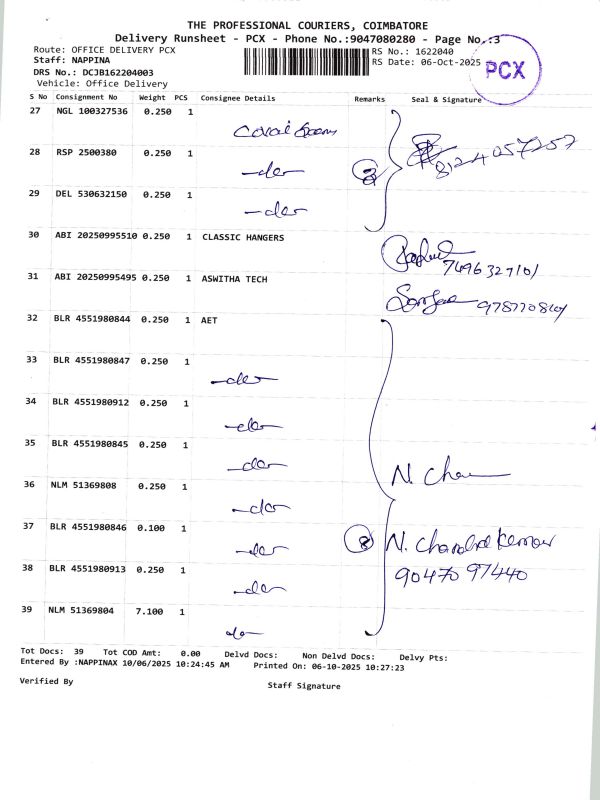 THE PROFESSIONAL COURIERS, COIMBATORE
Delivery Runsheet - PCX - Phone No.:9047080280 - Page No.:3
Route: OFFICE DELIVERY PCX
RS No.: 1622040
Staff: NAPPINA
RS Date: 06-Oct-2025
PCX
DRS No.: DCJB162204003
Vehicle: Office Delivery
S No Consignment No Weight PCS Consignee Details Remarks Seal & Signature
27 NGL 100327536 0.250 1
28 RSP 2500380 0.250 1 -do-
29 DEL 530632150 0.250 1 -do-
30 ABI 20250995510 0.250 1 CLASSIC HANGERS
7496327101
31 ABI 20250995495 0.250 1 ASWITHA TECH
32 BLR 4551980844 0.250 1 AET
33 BLR 4551980847 0.250 1 -do-
34 BLR 4551980912 0.250 1 -do-
35 BLR 4551980845 0.250 1 -do-
36 NLM 51369808 0.250 1 -do-
37 BLR 4551980846 0.100 1 -do- 8 N. Chandra Kumar
38 BLR 4551980913 0.250 1 -do- 90470 97440
39 NLM 51369804 7.100 1 do-
Tot Docs: 39 Tot COD Amt: 0.00 Delvd Docs: Non Delvd Docs: Delvy Pts:
Entered By :NAPPINAX 10/06/2025 10:24:45 AM Printed On: 06-10-2025 10:27:23
Verified By
Staff Signature